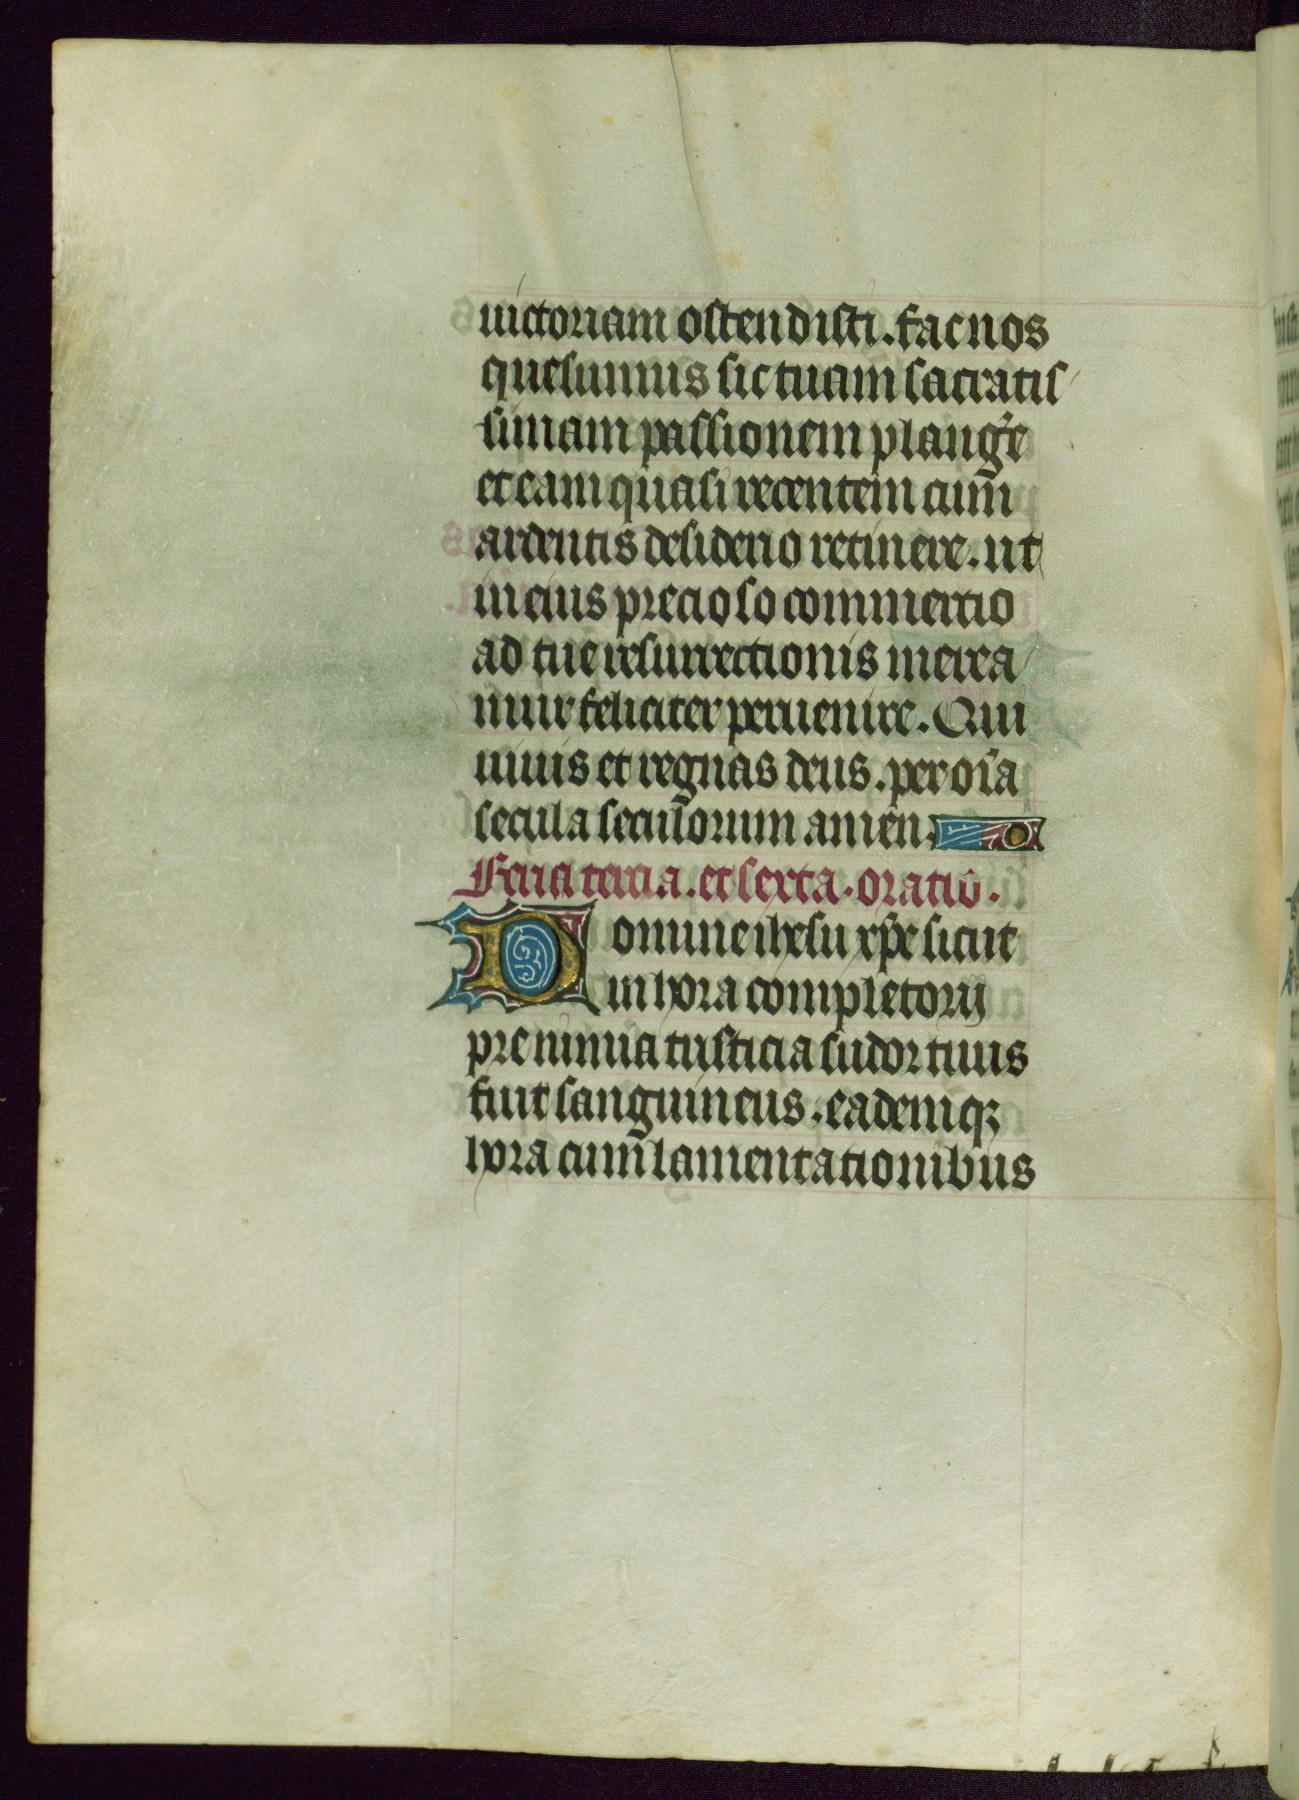 uictoriam ostendisti. fac nos
quesumus sic tuam sacratis
simam passionem plangẽ
et eam quasi recentem cum̃
ardentis desiderio retinere. ut
in eius precioso commercio
ad tue resurrectionis merea
mur feliciter peruenire. Qui
uiuis et regnas deus. per oı̃a
secula secul̃orum amen.
Feria tercia. et sexta. oratio.
Domine ihesu xp̃e sicut
in hora completorij
pre nimia tristicia sudor tuus
fuit sanguineus. eademqꝫ
hora cum̃ lamentationibus